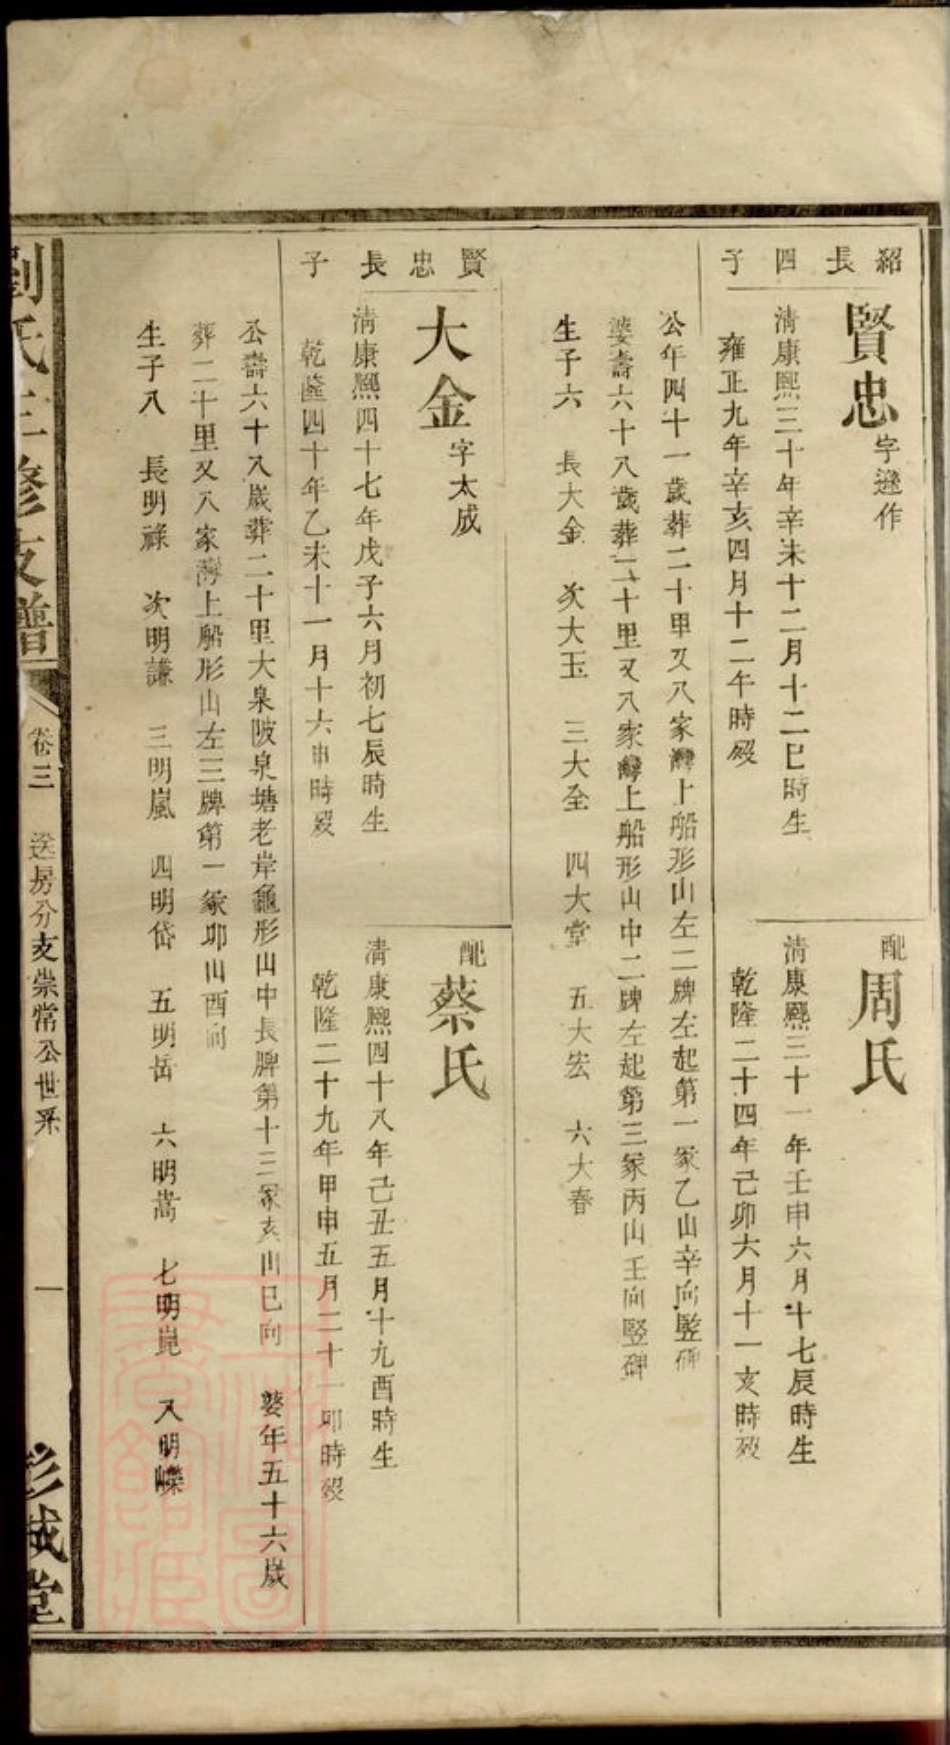 紹長四子
賢忠字遜作
清康熙三十年辛未十二月十二巳時生
雍正九年辛亥四月十二午時歿
配周氏
清康熙三十一年壬申六月十七辰時生
乾隆二十四年己卯六月十一亥時歿
公年四十一歲葬二十里又八家灣上船形山左二牌左起第一冢乙山辛向竪碑
婆壽六十八歲葬二十里又八家灣上船形山中二牌左起第三冢丙山壬向竪碑
生子六 長大金 次大玉 三大全 四大堂 五大宏 六大春
賢忠長子
大金字太成
清康熙四十七年戊子六月初七辰時生
乾隆四十年乙未十一月十六申時歿
配蔡氏
清康熙四十八年己丑五月十九酉時生
乾隆二十九年甲申五月二十一卯時歿
公壽六十八歲葬二十里大泉陂泉塘老岸龜形山中長牌第十三冢亥山巳向 婆年五十六歲
葬二十里又八家灣上船形山左三牌第一冢卯山酉向
生子八 長明祿 次明謙 三明嵐 四明岱 五明岳 六明嵩 七明崑 八明嶸
劉氏三修支譜
卷三 送房分支崇常公世系 一
彭城堂